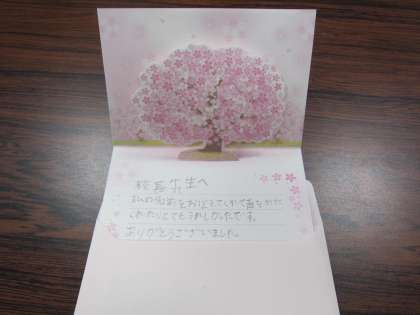 校長先生へ
私の名前をおぼえてくれて声をかけて
くれたりとてもうれしかったです。
ありがとうございました。